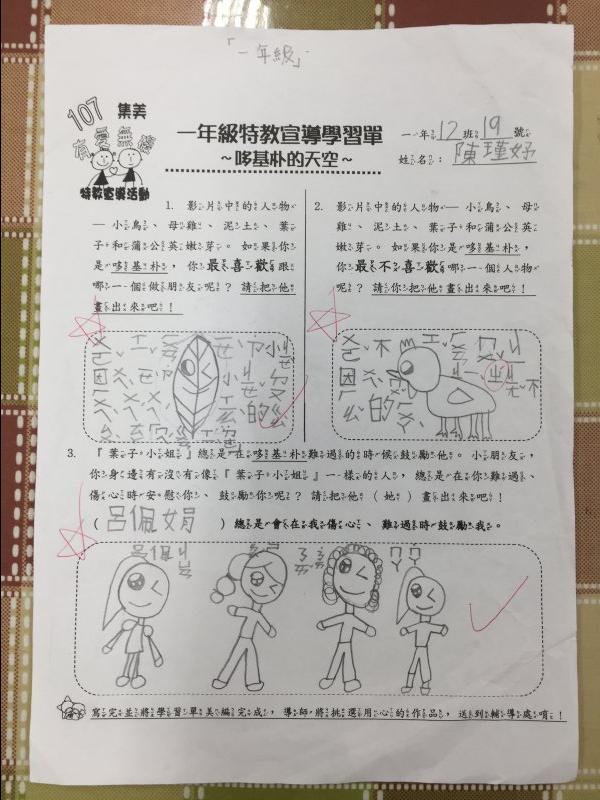 「一年級」
107 集美
有愛無礙
特教宣導活動
一年級特教宣導學習單
~哆基朴的天空~
一年12班19號
姓名：陳瑾妤
1. 影片中的人物
—小鳥、母雞、泥土、葉
子和蒲公英嫩芽。如果你
是哆基朴，你最喜歡跟
哪一個做朋友呢？請把他
畫出來吧！
2. 影片中的人物
—小鳥、母
雞、泥土、葉子和蒲公英
嫩芽。如果你是哆基朴，
你最不喜歡哪一個人物
呢？請你把他畫出來吧！
3. 『葉子小姐』總是在哆基朴難過的時候鼓勵他。小朋友，
你身邊有沒有像『葉子小姐』一樣的人，總是在你難過、
傷心時安慰你、鼓勵你呢？請把他（她）畫出來吧！
（呂佩娟）總是會在我傷心、難過時鼓勵我。
寫完並將學習單美編完成，導師將挑選用心的作品，送到輔導處唷！